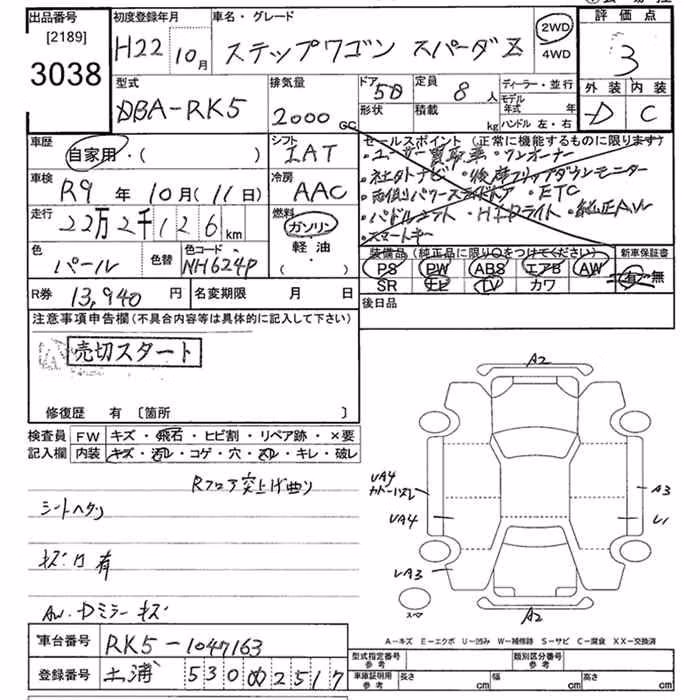 出品番号
[2189]
3038
初度登録年月
H22 10月
車名・グレード
ステップワゴン スパーダZ
2WD
4WD
評価点
3
外装 内装
D C
型式
DBA-RK5
排気量
2000 cc
ドア 5D
形状
定員 8人
積載 kg
ディーラー・並行
モデル年式 年
ハンドル 左・右
車歴
自家用・( )
シフト
IAT
セールスポイント (正常に機能するものに限ります)
・ユーザー買取車・ワンオーナー
・社外ナビ・後席フリップダウンモニター
・両側パワースライドドア・ETC
・パドルシフト・HIDライト・純正AW
・スマートキー
車検
R9年10月(11日)
冷房
AAC
走行
22万2千126km
燃料
ガソリン
軽油・
( )
色
パール
色替
色コード
NH624P
装備品 (純正品に限り○をつけてください)
PS PW ABS エアB AW
SR ナビ TV カワ
新車保証書
有・無
R券 13,940円
名変期限 月 日
後日品
注意事項申告欄(不具合内容等は具体的に記入して下さい)
売切スタート
修復歴 有 [箇所 ]
検査員
記入欄
FW キズ・飛石・ヒビ割・リペア跡・×要
内装 キズ・汚レ・コゲ・穴・スレ・キレ・破レ
Rフロア突上げ曲り
シートヘタリ
キズ凹有
AW・Dミラーキズ
A2
UA4
UA4
A3
U1
UA3
スペア
A2
A-キズ E-エクボ U-凹み W-補修跡 S-サビ C-腐食 XX-交換済
車台番号 RK5-1047163
登録番号 土浦 530 の 2517
型式指定番号
参考
類別区分番号
参考
車庫証明用
参考
長さ cm 幅 cm 高さ cm